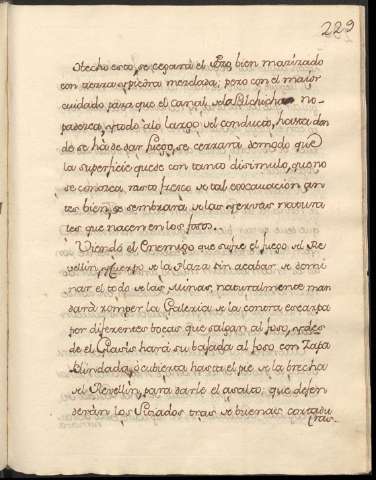 229
Hecho esto, se cegará el Pozo bien macizado
con tierra y piedra mezclada; pero con el maior
cuidado para que el Canal de la Salchicha no
padezca, y todo a lo largo del conducto, hasta don
de se há de dar fuego, se cerrará de modo que
la superficie quede con tanto disimulo, que no
se conosca rastro fresco de tal excavacion an
tes bien, se sembrará de las yervas natura
les que nacen en los fosos.
Viendo el Enemigo que sufre el fuego del Re
vellin, y Cuerpo de la Plaza sin acabar de domi
nar el todo de las Minas, naturalmente man
dará romper la Galeria de la contra escarpa
por diferentes bocas que salgan al foso, y des
de el Glasis hará su bajada al foso con Zapa
blindada, ó cubierta hasta el pie de la brecha
del Revellin, para darle el asalto; que defen
derán los Sitiados tras de buenas cortadu
ras.